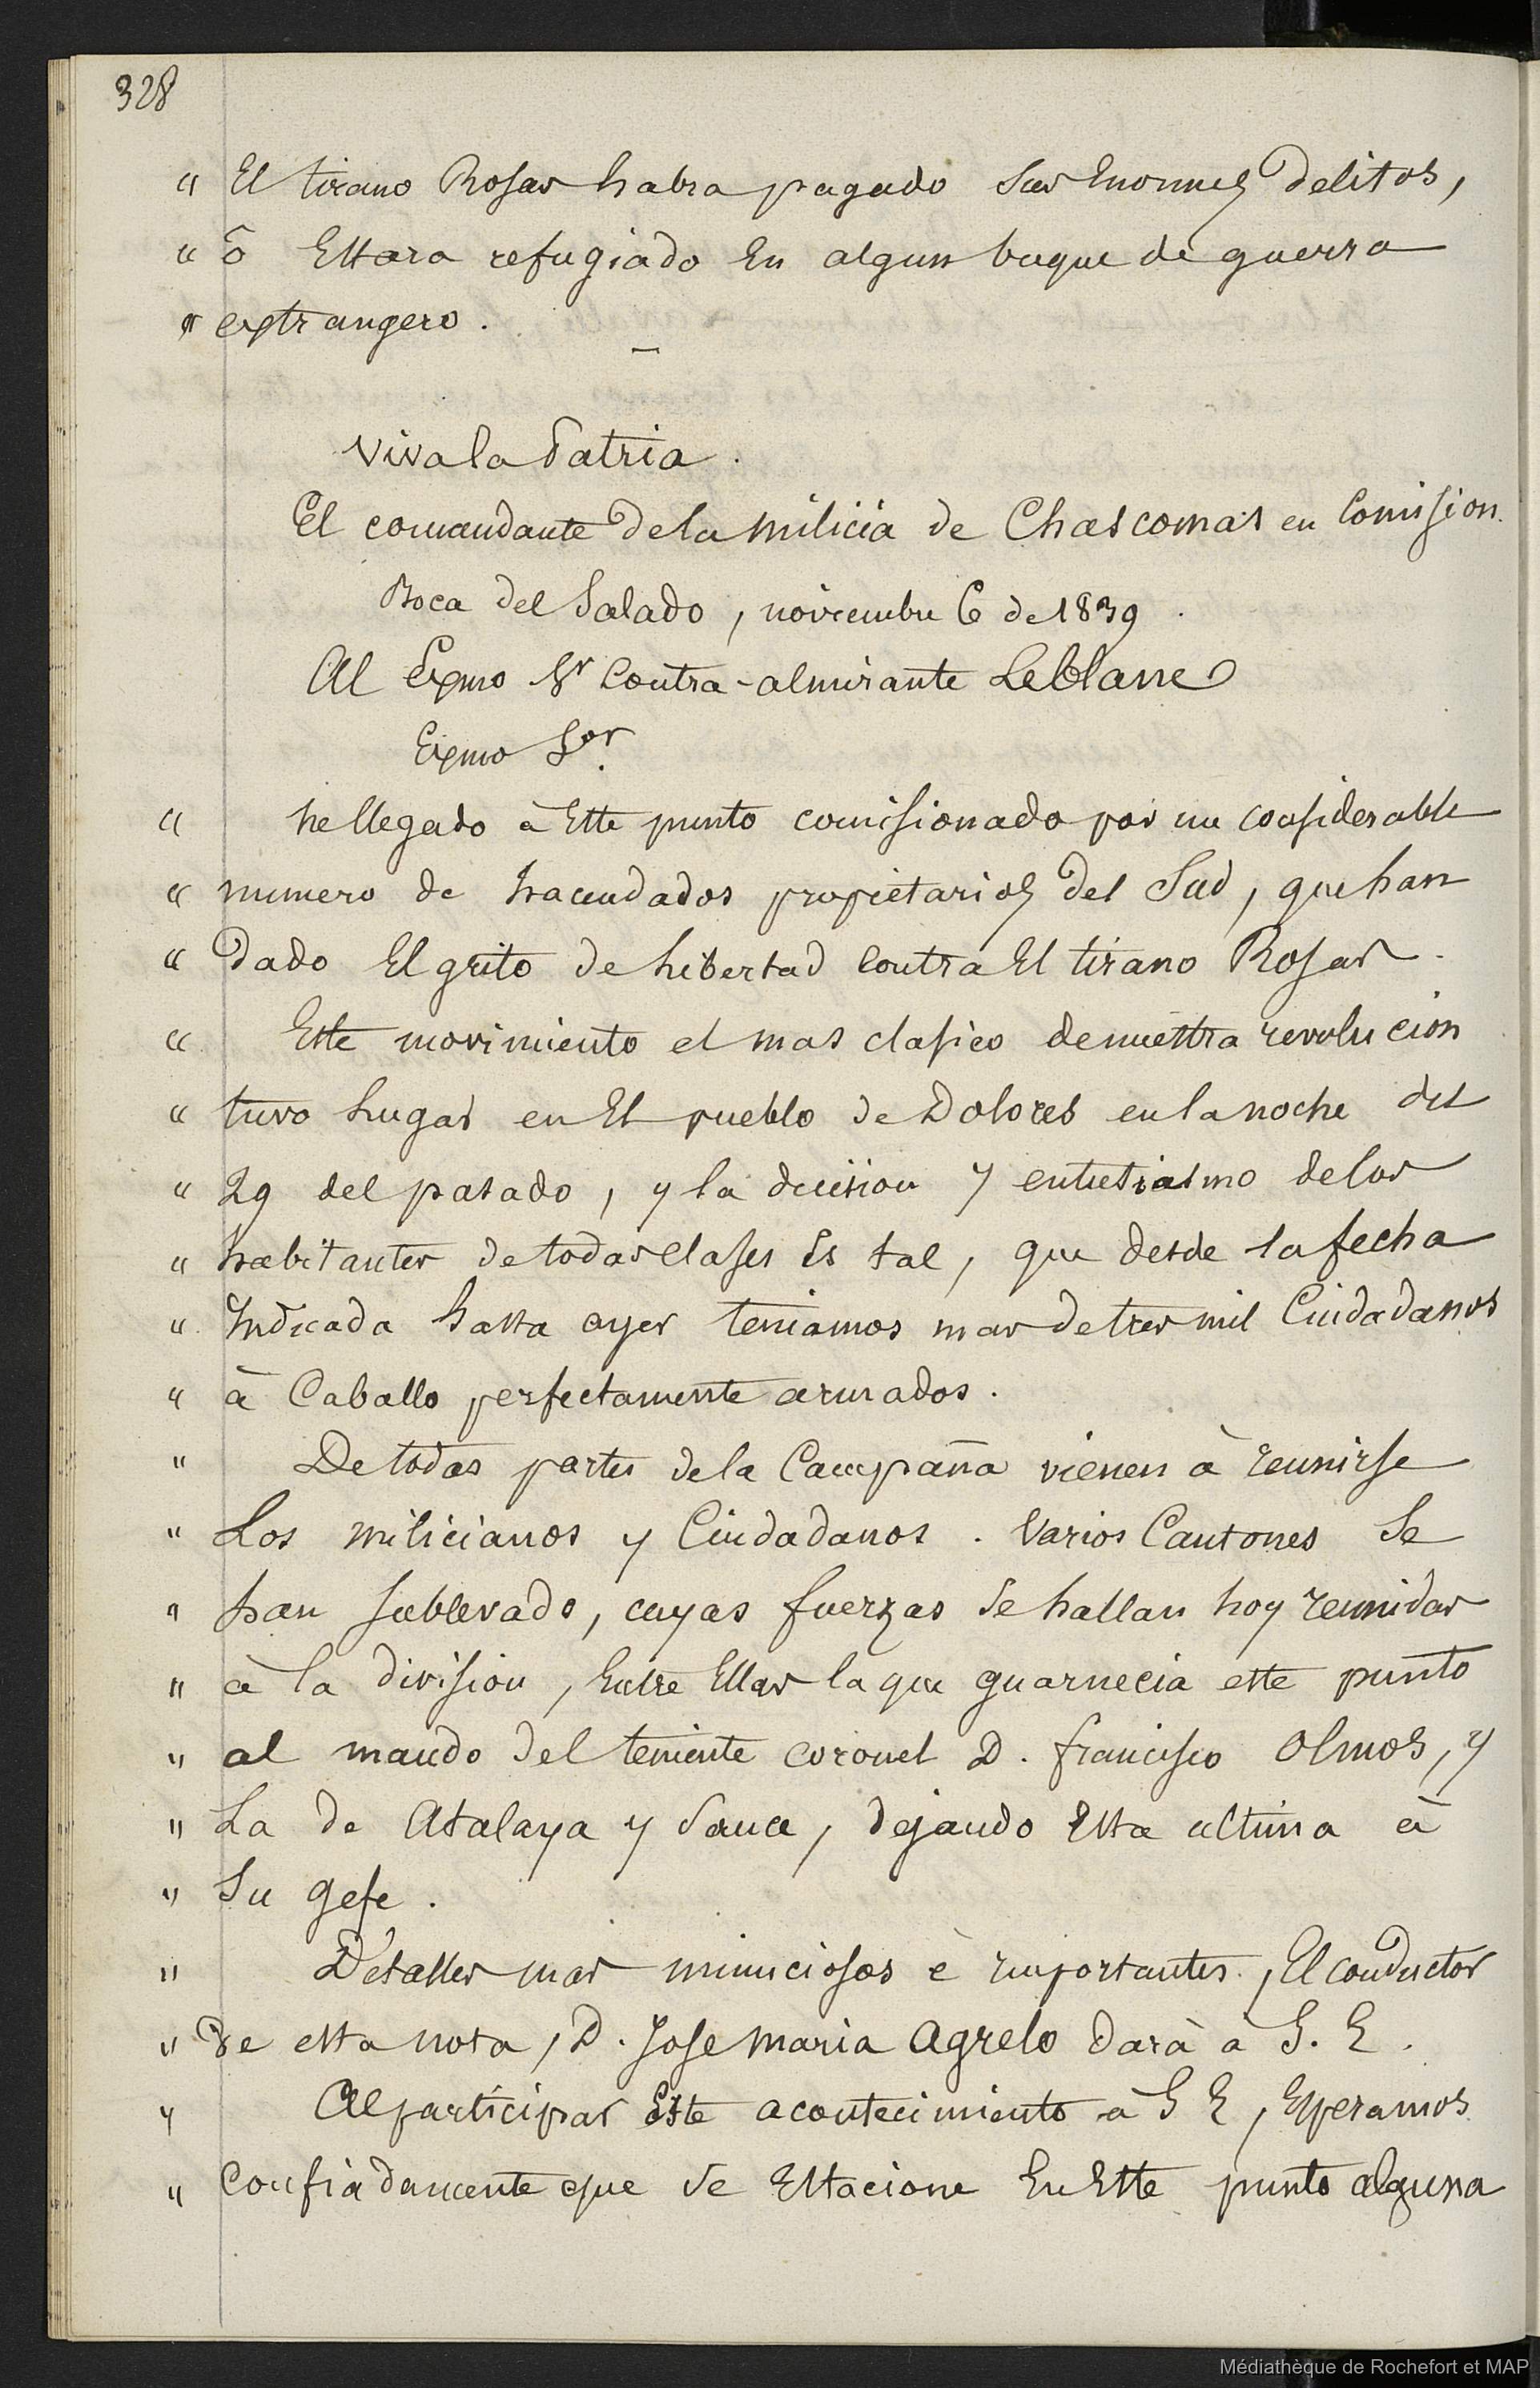 328
" El tirano Rosas habra pagado sus Enormes Delitos,
" ō Estara refugiado En algun buque de guerra
" extrangero.
—
Viva la Patria.
El comandante de la milicia de Chascomas en Comision.
Boca del Salado, noviembre 6 de 1839.
Al Exmo Sr Contra-almirante Leblanc
Exmo Sor.
" he llegado à Este punto comisionado por un considerable
" numero de hacendados propietarios del Sud, que han
" dado El grito de Libertad Contra El tirano Rosas.
" Este movimiento el mas clasico de nuestra revolucion
" tuvo Lugar en El pueblo de Dolores en la noche del
" 29 del pasado, y la decision y entusiasmo de los
" habitantes de todas Clases Es tal, que desde la fecha
" Indicada hasta ayer teniamos mas de tres mil Ciudadanos
" à Caballo perfectamente armados.
" De todas partes de la Campaña vienen à reunirse
" Los milicianos y Ciudadanos. Varios Cantones Se
" han sublevado, cuyas fuerzas se hallan hoy reunidas
" à la division, Entre Ellas la que guarnecia este punto
" al mando del teniente coronel D. francisco Olmos, y
" La de Atalaya y Sauce, dejando Esta ultima à
" Su gefe.
" Détalles mas minuciosos è importantes, El conductor
" De esta nota, D. Jose maria Agrelo Darà à S. E.
" Al participar Este acontecimiento à S E, Esperamos
" Confiadamente que se Estacione En Este punto alguna
Médiathèque de Rochefort et MAP